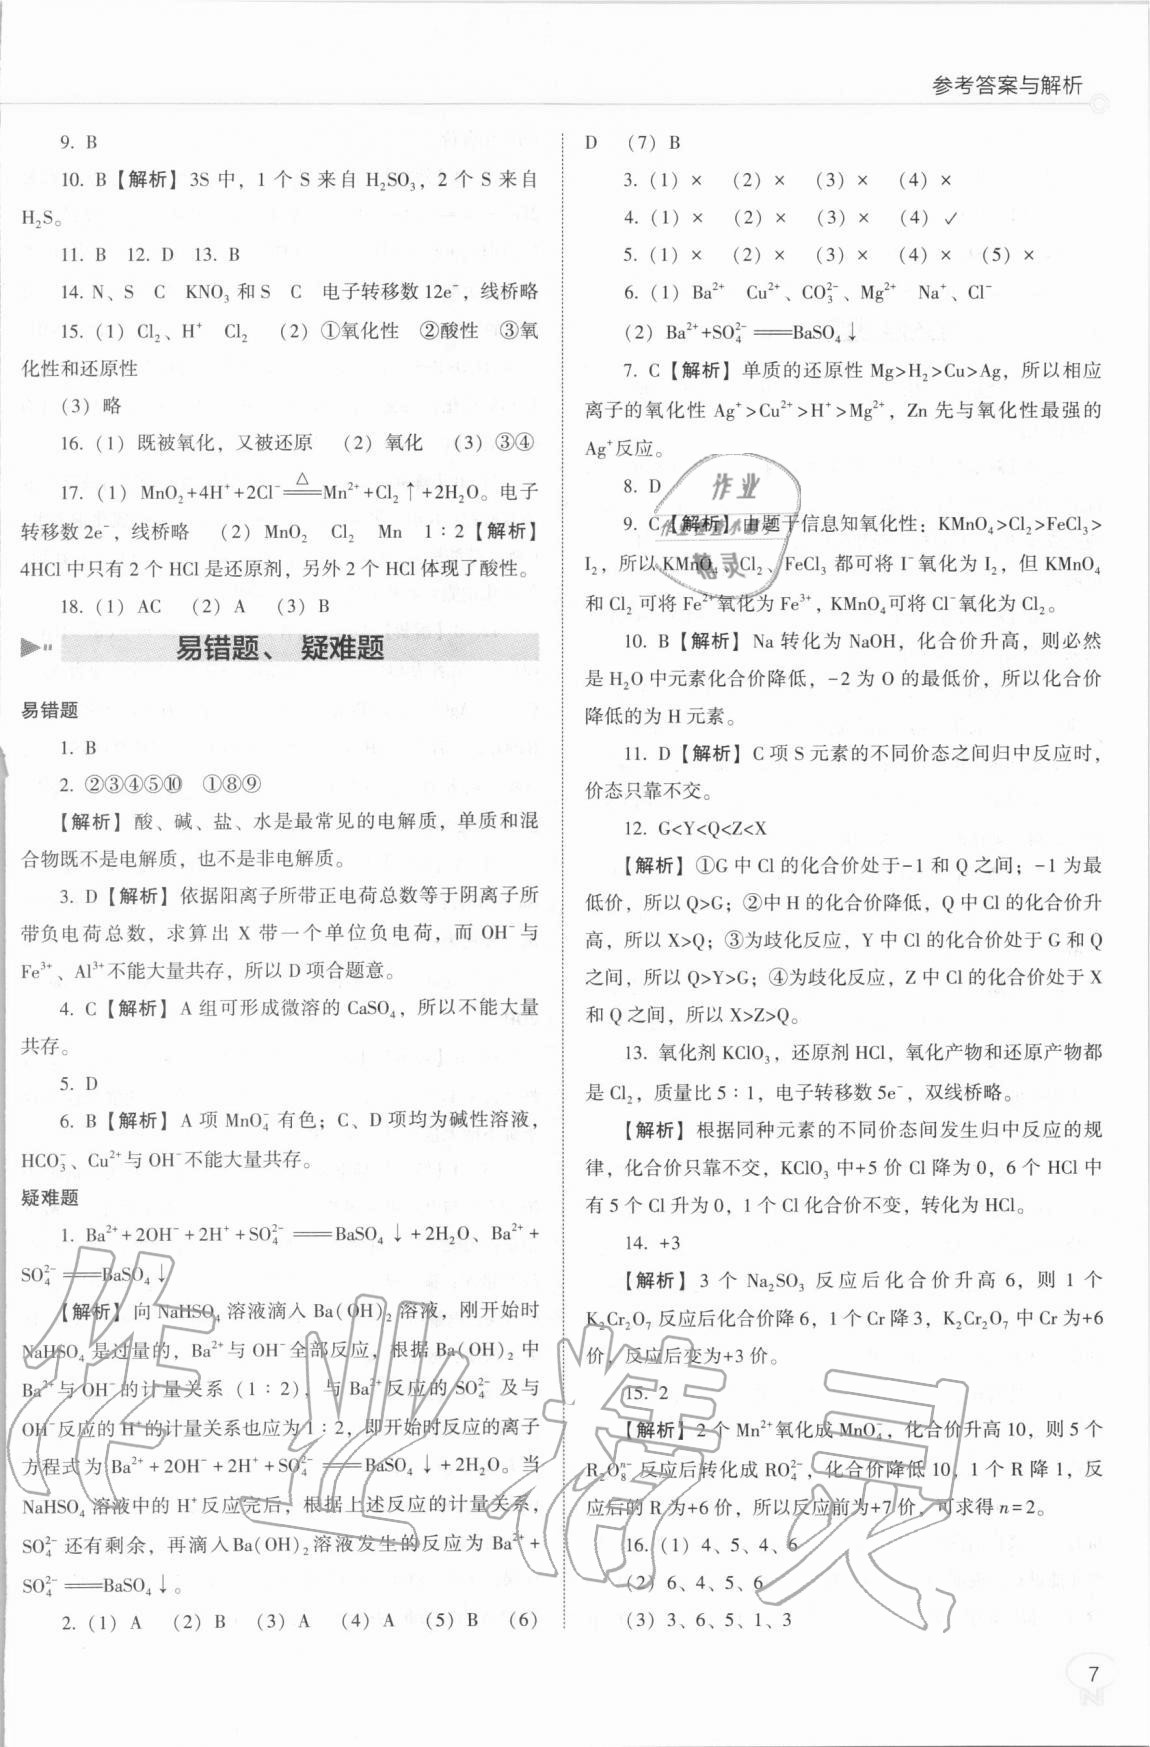 参考答案与解析
9. B
10. B【解析】3S 中，1 个 S 来自 H₂SO₃，2 个 S 来自
H₂S。
11. B 12. D 13. B
14. N、S C KNO₃ 和 S C 电子转移数 12e⁻，线桥略
15.（1）Cl₂、H⁺ Cl₂ （2）①氧化性 ②酸性 ③氧
化性和还原性
（3）略
16.（1）既被氧化，又被还原 （2）氧化 （3）③④
17.（1）MnO₂+4H⁺+2Cl⁻ ≜ Mn²⁺+Cl₂↑+2H₂O。电子
转移数 2e⁻，线桥略 （2）MnO₂ Cl₂ Mn 1∶2【解析】
4HCl 中只有 2 个 HCl 是还原剂，另外 2 个 HCl 体现了酸性。
18.（1）AC （2）A （3）B
易错题、疑难题
易错题
1. B
2. ②③④⑤⑩ ①⑧⑨
【解析】酸、碱、盐、水是最常见的电解质，单质和混
合物既不是电解质，也不是非电解质。
3. D【解析】依据阳离子所带正电荷总数等于阴离子所
带负电荷总数，求算出 X 带一个单位负电荷，而 OH⁻ 与
Fe³⁺、Al³⁺ 不能大量共存，所以 D 项合题意。
4. C【解析】A 组可形成微溶的 CaSO₄，所以不能大量
共存。
5. D
6. B【解析】A 项 MnO₄⁻ 有色；C、D 项均为碱性溶液，
HCO₃⁻、Cu²⁺ 与 OH⁻ 不能大量共存。
疑难题
1. Ba²⁺+2OH⁻+2H⁺+SO₄²⁻══BaSO₄↓+2H₂O、Ba²⁺+
SO₄²⁻══BaSO₄↓
【解析】向 NaHSO₄ 溶液滴入 Ba(OH)₂ 溶液，刚开始时
NaHSO₄ 是过量的，Ba²⁺ 与 OH⁻ 全部反应，根据 Ba(OH)₂ 中
Ba²⁺ 与 OH⁻ 的计量关系（1∶2），与 Ba²⁺ 反应的 SO₄²⁻ 及与
OH⁻ 反应的 H⁺ 的计量关系也应为 1∶2，即开始时反应的离子
方程式为 Ba²⁺+2OH⁻+2H⁺+SO₄²⁻══BaSO₄↓+2H₂O。当
NaHSO₄ 溶液中的 H⁺ 反应完后，根据上述反应的计量关系，
SO₄²⁻ 还有剩余，再滴入 Ba(OH)₂ 溶液发生的反应为 Ba²⁺+
SO₄²⁻══BaSO₄↓。
2.（1）A （2）B （3）A （4）A （5）B （6）
D （7）B
3.（1）× （2）× （3）× （4）×
4.（1）× （2）× （3）× （4）✓
5.（1）× （2）× （3）× （4）× （5）×
6.（1）Ba²⁺ Cu²⁺、CO₃²⁻、Mg²⁺ Na⁺、Cl⁻
（2）Ba²⁺+SO₄²⁻══BaSO₄↓
7. C【解析】单质的还原性 Mg>H₂>Cu>Ag，所以相应
离子的氧化性 Ag⁺>Cu²⁺>H⁺>Mg²⁺，Zn 先与氧化性最强的
Ag⁺ 反应。
8. D
9. C【解析】由题干信息知氧化性：KMnO₄>Cl₂>FeCl₃>
I₂，所以 KMnO₄、Cl₂、FeCl₃ 都可将 I⁻ 氧化为 I₂，但 KMnO₄
和 Cl₂ 可将 Fe²⁺ 氧化为 Fe³⁺，KMnO₄ 可将 Cl⁻ 氧化为 Cl₂。
10. B【解析】Na 转化为 NaOH，化合价升高，则必然
是 H₂O 中元素化合价降低，-2 为 O 的最低价，所以化合价
降低的为 H 元素。
11. D【解析】C 项 S 元素的不同价态之间归中反应时，
价态只靠不交。
12. G<Y<Q<Z<X
【解析】①G 中 Cl 的化合价处于-1 和 Q 之间；-1 为最
低价，所以 Q>G；②中 H 的化合价降低，Q 中 Cl 的化合价升
高，所以 X>Q；③为歧化反应，Y 中 Cl 的化合价处于 G 和 Q
之间，所以 Q>Y>G；④为歧化反应，Z 中 Cl 的化合价处于 X
和 Q 之间，所以 X>Z>Q。
13. 氧化剂 KClO₃，还原剂 HCl，氧化产物和还原产物都
是 Cl₂，质量比 5∶1，电子转移数 5e⁻，双线桥略。
【解析】根据同种元素的不同价态间发生归中反应的规
律，化合价只靠不交，KClO₃ 中+5 价 Cl 降为 0，6 个 HCl 中
有 5 个 Cl 升为 0，1 个 Cl 化合价不变，转化为 HCl。
14. +3
【解析】3 个 Na₂SO₃ 反应后化合价升高 6，则 1 个
K₂Cr₂O₇ 反应后化合价降 6，1 个 Cr 降 3，K₂Cr₂O₇ 中 Cr 为+6
价，反应后变为+3 价。
15. 2
【解析】2 个 Mn²⁺ 氧化成 MnO₄⁻，化合价升高 10，则 5 个
R₂O₈ⁿ⁻ 反应后转化成 RO₄²⁻，化合价降低 10，1 个 R 降 1，反
应后的 R 为+6 价，所以反应前为+7 价，可求得 n=2。
16.（1）4、5、4、6
（2）6、4、5、6
（3）3、6、5、1、3
作业精灵
7